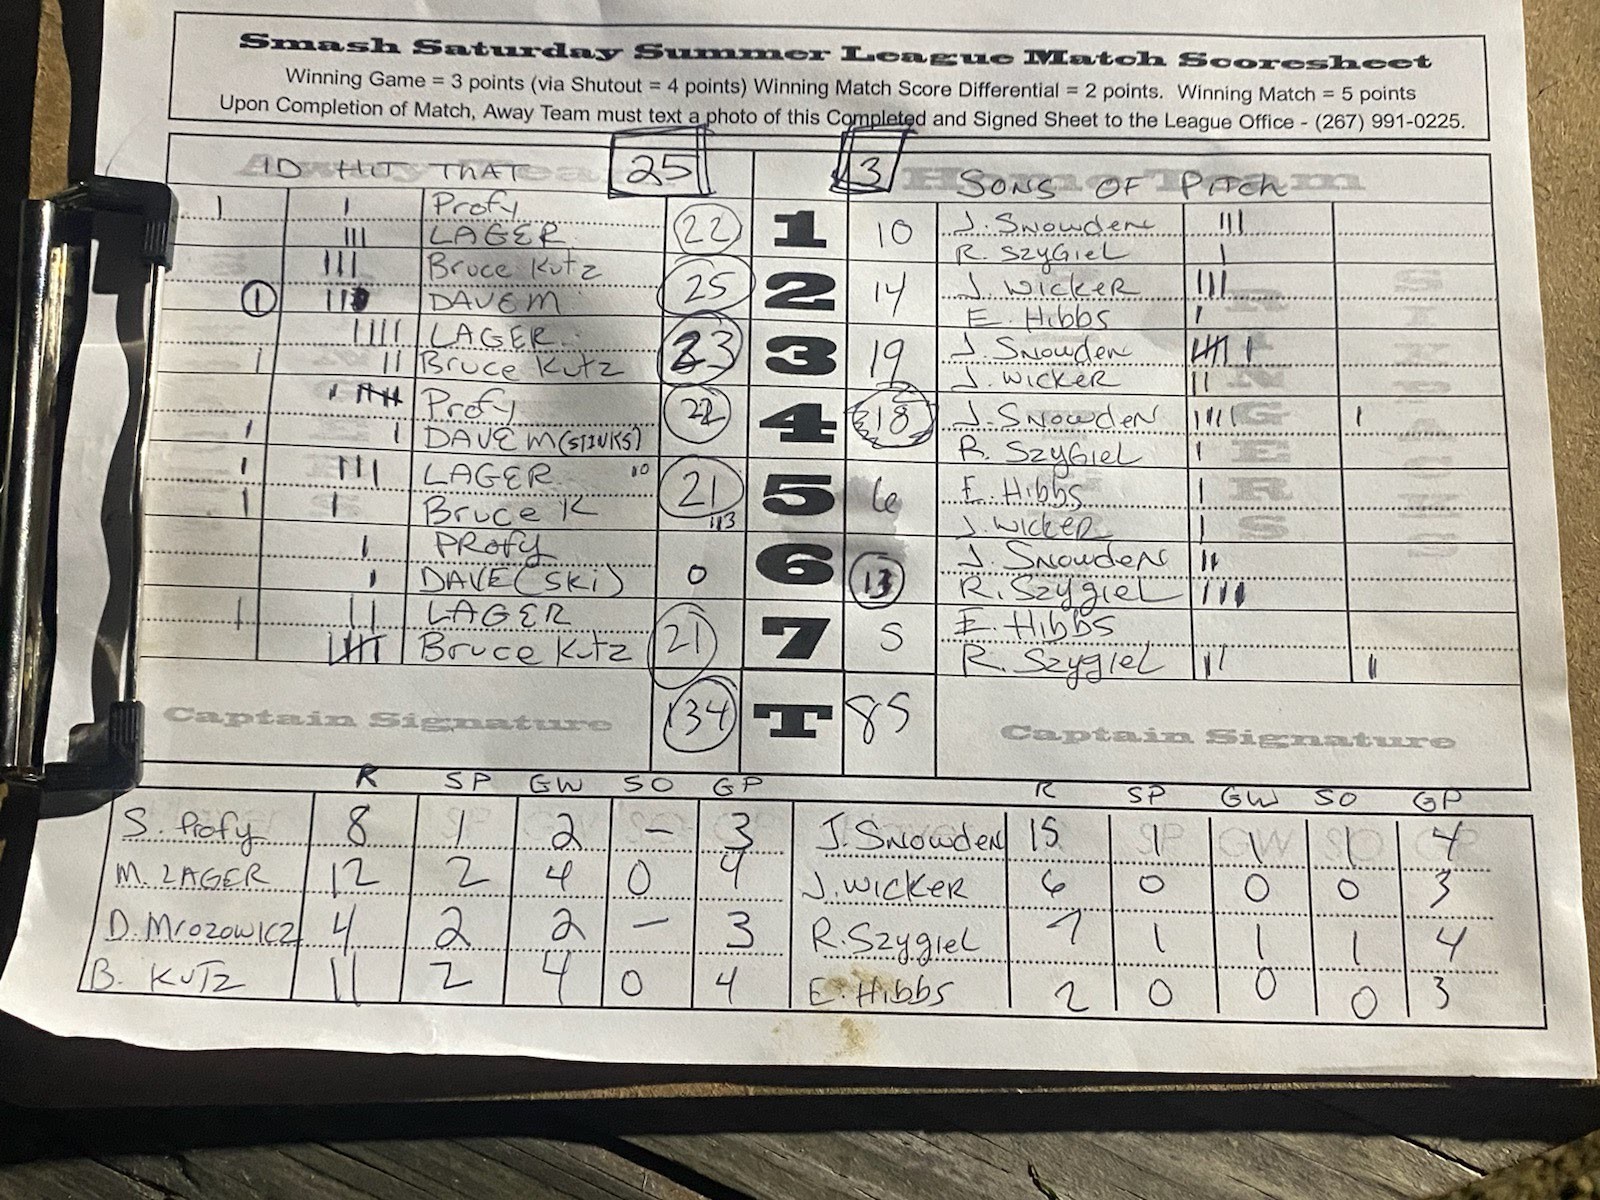 Smash Saturday Summer League Match Scoresheet
Winning Game = 3 points (via Shutout = 4 points) Winning Match Score Differential = 2 points. Winning Match = 5 points
Upon Completion of Match, Away Team must text a photo of this Completed and Signed Sheet to the League Office - (267) 991-0225.
ID HIT THAT 25 3 SONS OF PITCH
Away Team Home Team
Profy 22 1 10 J. Snowden
LAGER R. SzyGiel
Bruce Kutz 25 2 14 J. WICKER
1 DAVE M E. HIBBS
LAGER 23 3 19 J. Snowden
Bruce Kutz J. WICKER
Profy 22 4 18 J. Snowden
DAVE M (STINKS) R. SzyGiel
LAGER 10 21 5 6 E. HIBBS
Bruce K 113 J. WICKER
PROfy 0 6 13 J. Snowden
DAVE (SKI) R. Szygiel
LAGER 21 7 5 E. HIBBS
Bruce Kutz R. Szygiel
Captain Signature 134 T 85 Captain Signature
R SP GW SO GP R SP GW SO GP
S. Profy 8 1 2 – 3 J. Snowden 15 1 1 1 4
M. LAGER 12 2 4 0 4 J. WICKER 6 0 0 0 3
D. Mrozowicz 4 2 2 – 3 R. Szygiel 7 1 1 1 4
B. KUTZ 11 2 4 0 4 E. HIBBS 2 0 0 0 3